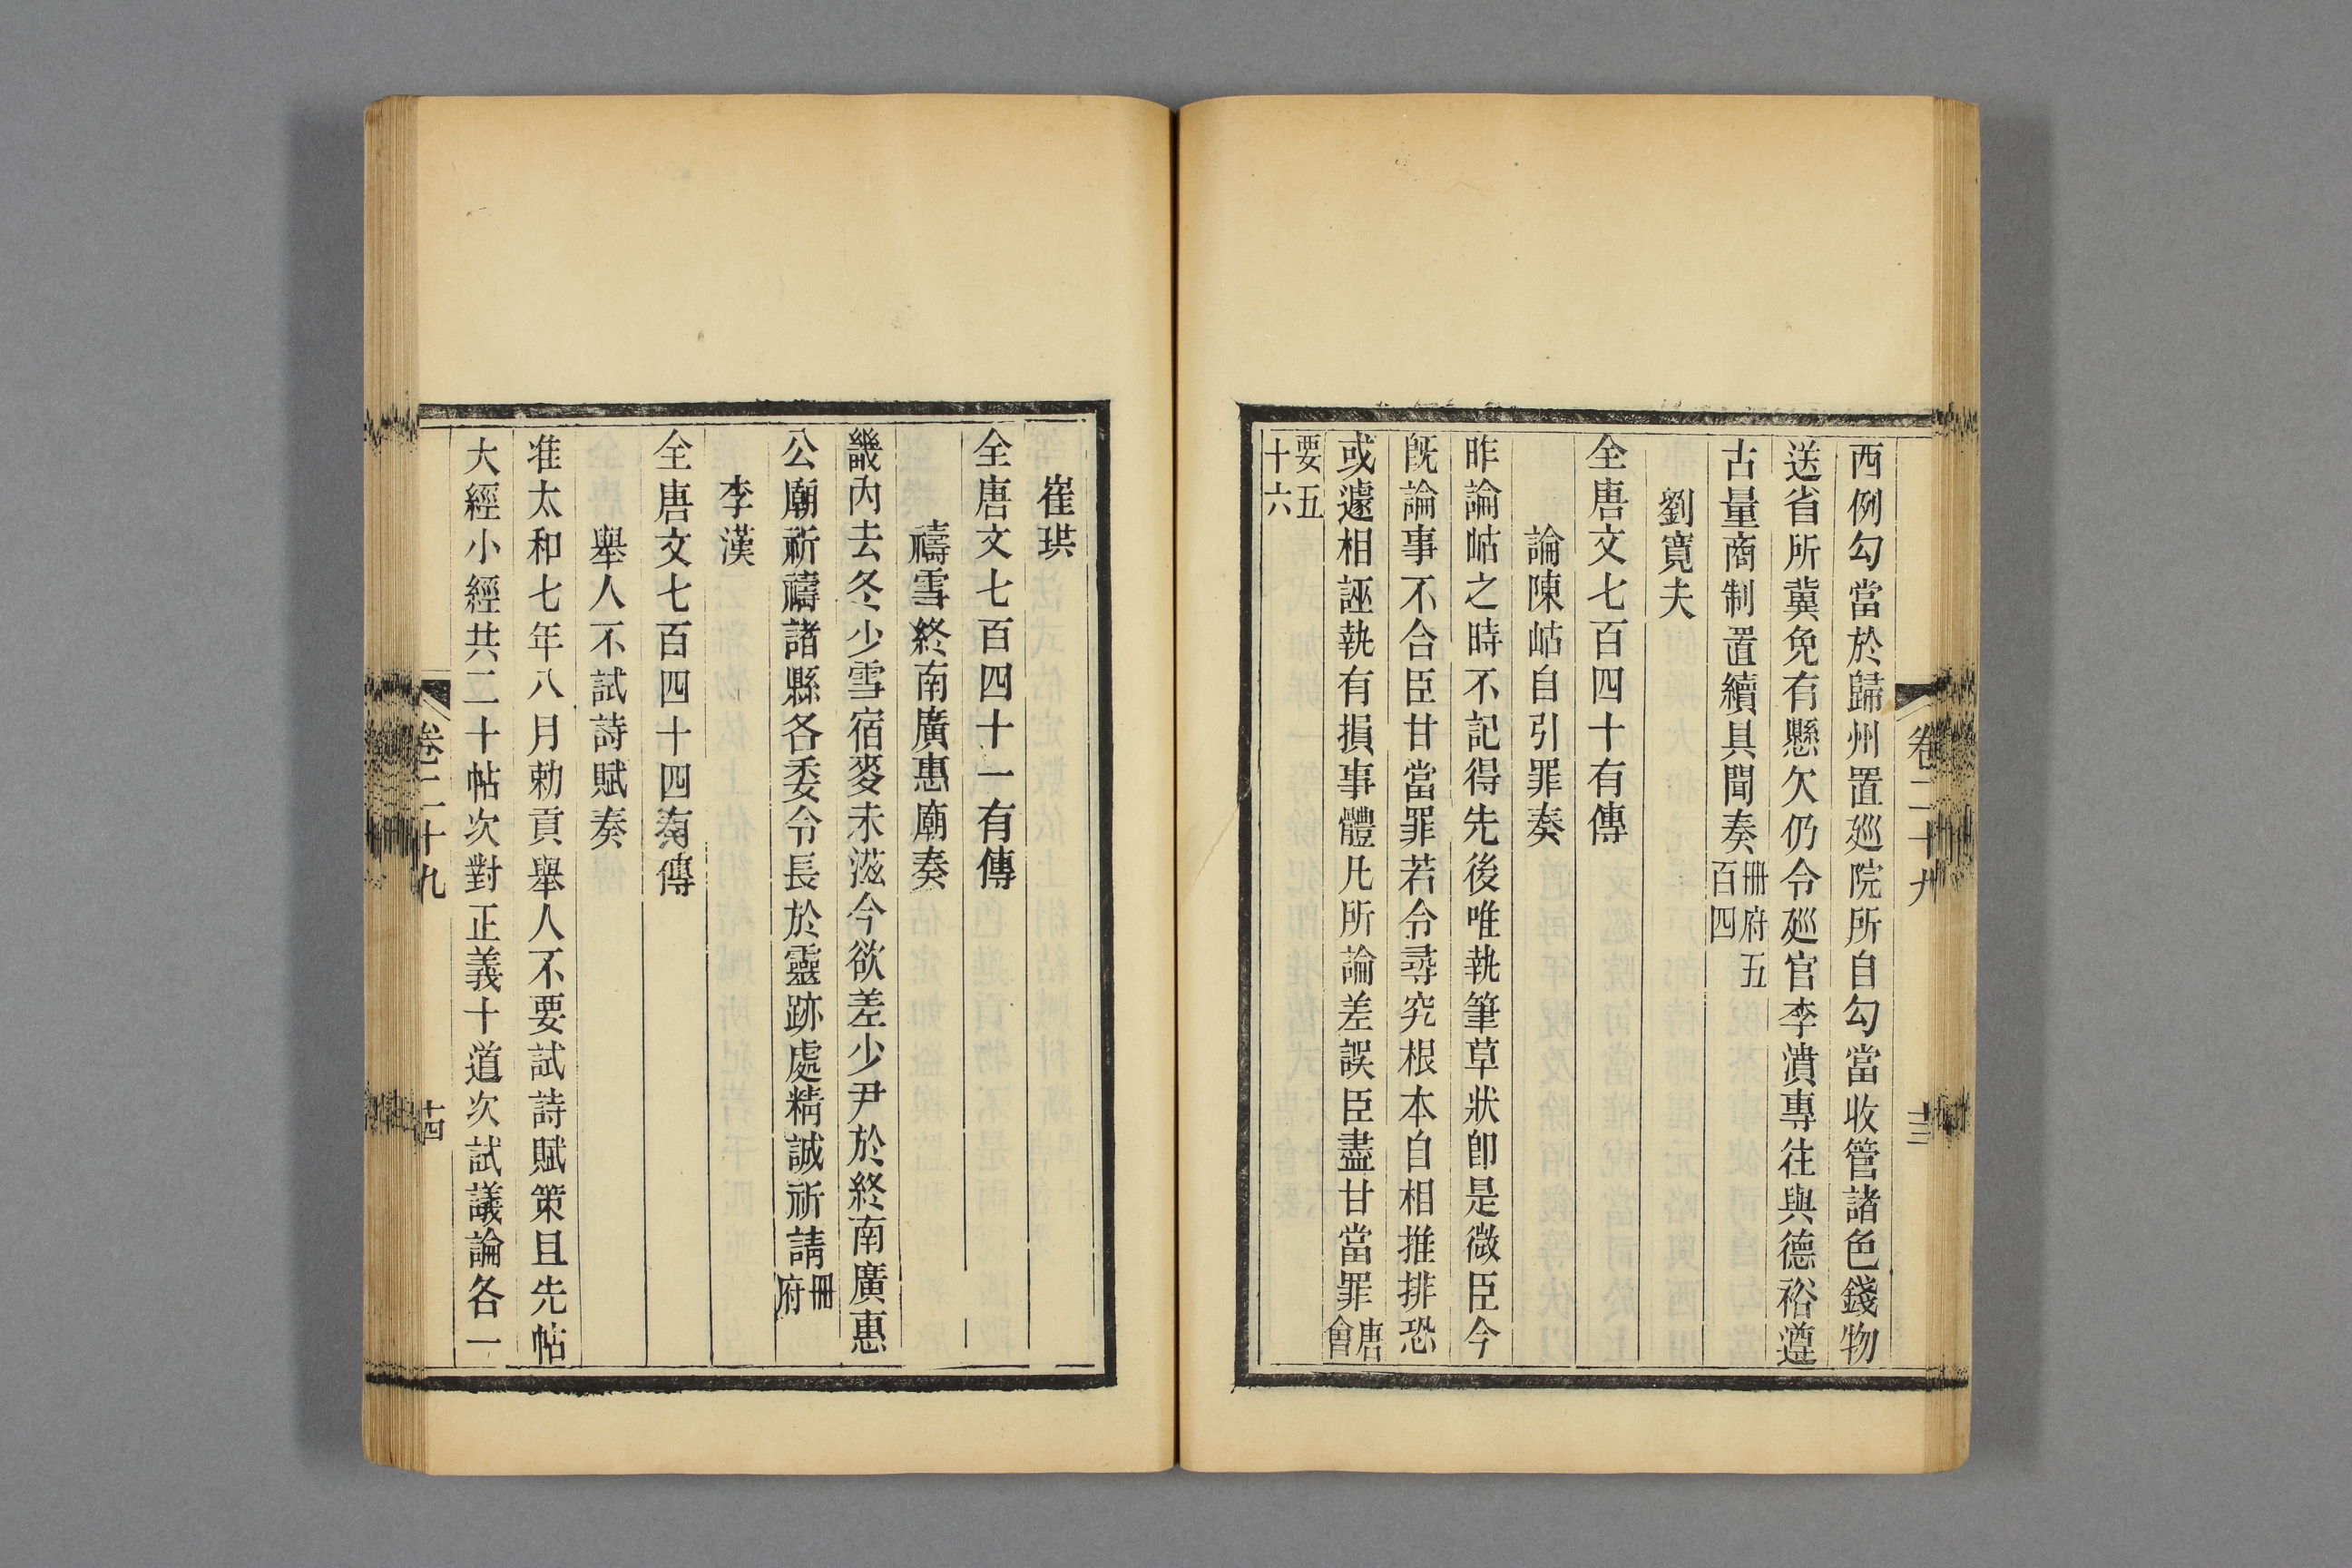 西例勾當於歸州置廵院所自勾當收管諸色錢物
送省所冀免有懸欠仍令廵官李濆專往與德裕遵
古量商制置續具聞奏冊府五百四
劉寬夫
全唐文七百四十有傳
論陳岵自引罪奏
昨論岵之時不記得先後唯執筆草狀卽是微臣今
旣論事不合臣甘當罪若令尋究根本自相推排恐
或遽相誣執有損事體凡所論差誤臣盡甘當罪唐會
要五十六
卷二十九
十三
崔珙
全唐文七百四十一有傳
禱雪終南廣惠廟奏
畿內去冬少雪宿麥未滋今欲差少尹於終南廣惠
公廟祈禱諸縣各委令長於靈跡處精誠祈請冊府
李漢
全唐文七百四十四有傳
舉人不試詩賦奏
准太和七年八月勅貢舉人不要試詩賦策且先帖
大經小經共二十帖次對正義十道次試議論各一
卷二十九
十四